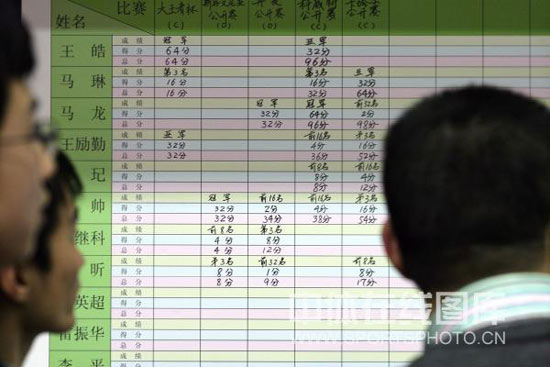 比赛 大王者杯 公开赛 公开赛 公开赛 公开赛
姓名 (C) (D) (D) (C) (C)
王 皓 成绩 冠军 亚军
得分 64分 32分
总分 64分 96分
马 琳 成绩 第3名 第3名 亚军
得分 16分 16分 32分
总分 16分 32分 64分
马 龙 成绩 冠军 冠军 前32名
得分 32分 64分 2分
总分 32分 96分 98分
王励勤 成绩 亚军 前16名 第3名
得分 32分 4分 16分
总分 32分 36分 52分
玘 成绩 前8名 前16名
得分 8分 4分
总分 8分 12分
帅 成绩 冠军 前16名 前16名 第3名
得分 32分 2分 4分 16分
总分 32分 34分 38分 54分
继科 成绩 前8名 第3名
得分 4分 8分
总分 4分 12分
昕 成绩 第3名 前32名 前8名
得分 8分 1分 8分
总分 8分 9分 17分
英超 成绩
得分
总分
雷振华 成绩
得分
总分
李 平 成绩
得分
中体在线图库
WWW.SPORTSPHOTO.CN